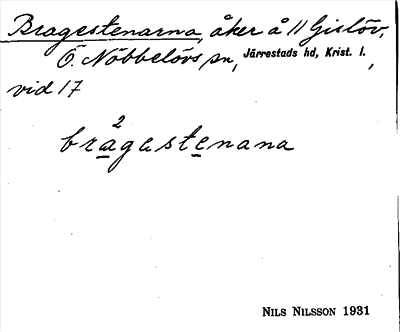 Bragestenarna, åker å 11 Gislöv,
Ö. Nöbbelövs sn, Järrestads hd, Krist. l.,
vid 17
2
bragastenana
NILS NILSSON 1931